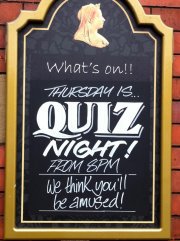 What's on!!
THURSDAY IS...
QUIZ
NIGHT!
FROM 8PM
We think you'll
be amused!